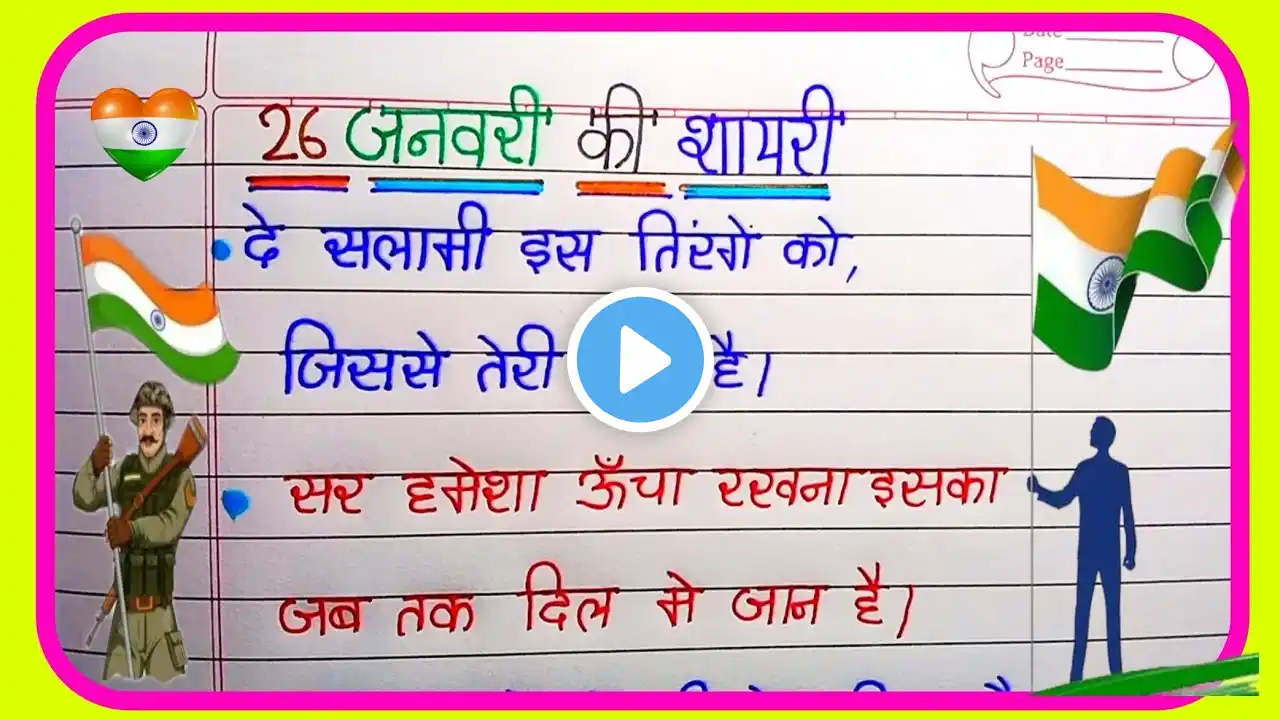 Date
Page
26 जनवरी की शायरी
दे सलामी इस तिरंगें को,
जिससे तेरी है।
सर हमेशा ऊँचा रखना इसका
जब तक दिल मे जान है।